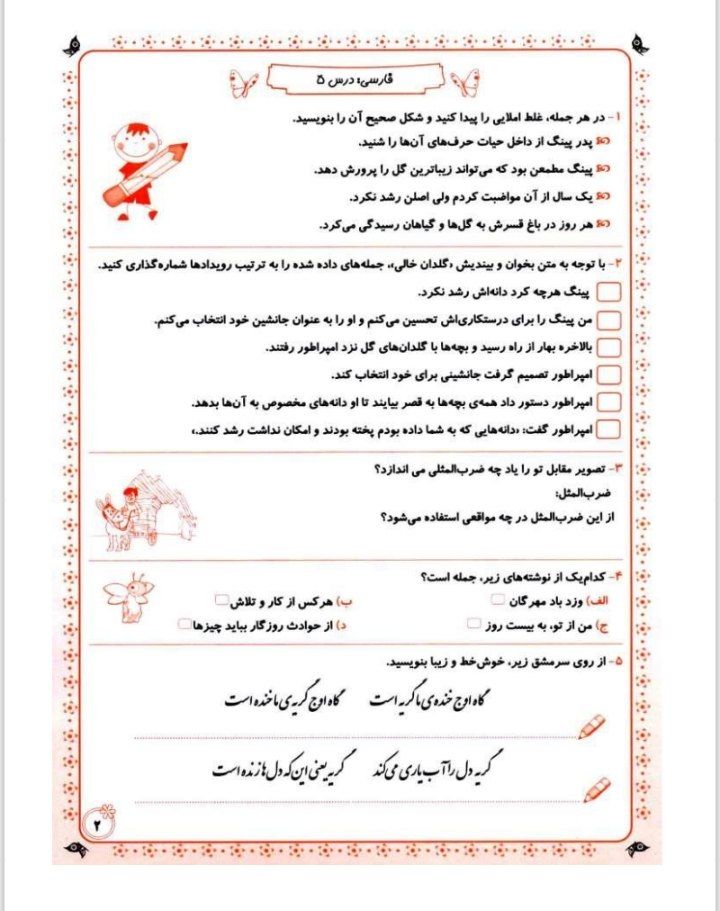 فارسی: درس ۵
۱- در هر جمله، غلط املایی را پیدا کنید و شکل صحیح آن را بنویسید.
پدر پینگ از داخل حیات حرف‌های آن‌ها را شنید.
پینگ مطمعن بود که می‌تواند زیباترین گل را پرورش دهد.
یک سال از آن مواضبت کردم ولی اصلن رشد نکرد.
هر روز در باغ قسرش به گل‌ها و گیاهان رسیدگی می‌کرد.
۲- با توجه به متن بخوان و بیندیش «گلدان خالی»، جمله‌های داده شده را به ترتیب رویدادها شماره‌گذاری کنید.
پینگ هرچه کرد دانه‌اش رشد نکرد.
من پینگ را برای درستکاری‌اش تحسین می‌کنم و او را به عنوان جانشین خود انتخاب می‌کنم.
بالاخره بهار از راه رسید و بچه‌ها با گلدان‌های گل نزد امپراطور رفتند.
امپراطور تصمیم گرفت جانشینی برای خود انتخاب کند.
امپراطور دستور داد همه‌ی بچه‌ها به قصر بیایند تا او دانه‌های مخصوص به آن‌ها بدهد.
امپراطور گفت: «دانه‌هایی که به شما داده بودم پخته بودند و امکان نداشت رشد کنند.»
۳- تصویر مقابل تو را یاد چه ضرب‌المثلی می اندازد؟
ضرب‌المثل:
از این ضرب‌المثل در چه مواقعی استفاده می‌شود؟
۴- کدام‌یک از نوشته‌های زیر، جمله است؟
الف) وزد باد مهرگان ب) هرکس از کار و تلاش
ج) من از تو، به بیست روز د) از حوادث روزگار بباید چیزها
۵- از روی سرمشق زیر، خوش‌خط و زیبا بنویسید.
گاه اوج خنده‌ی ما گریه است گاه اوج گریه‌ی ما خنده است
گریه دل را آب یاری می‌کند گریه یعنی این که دل ها زنده است
۲